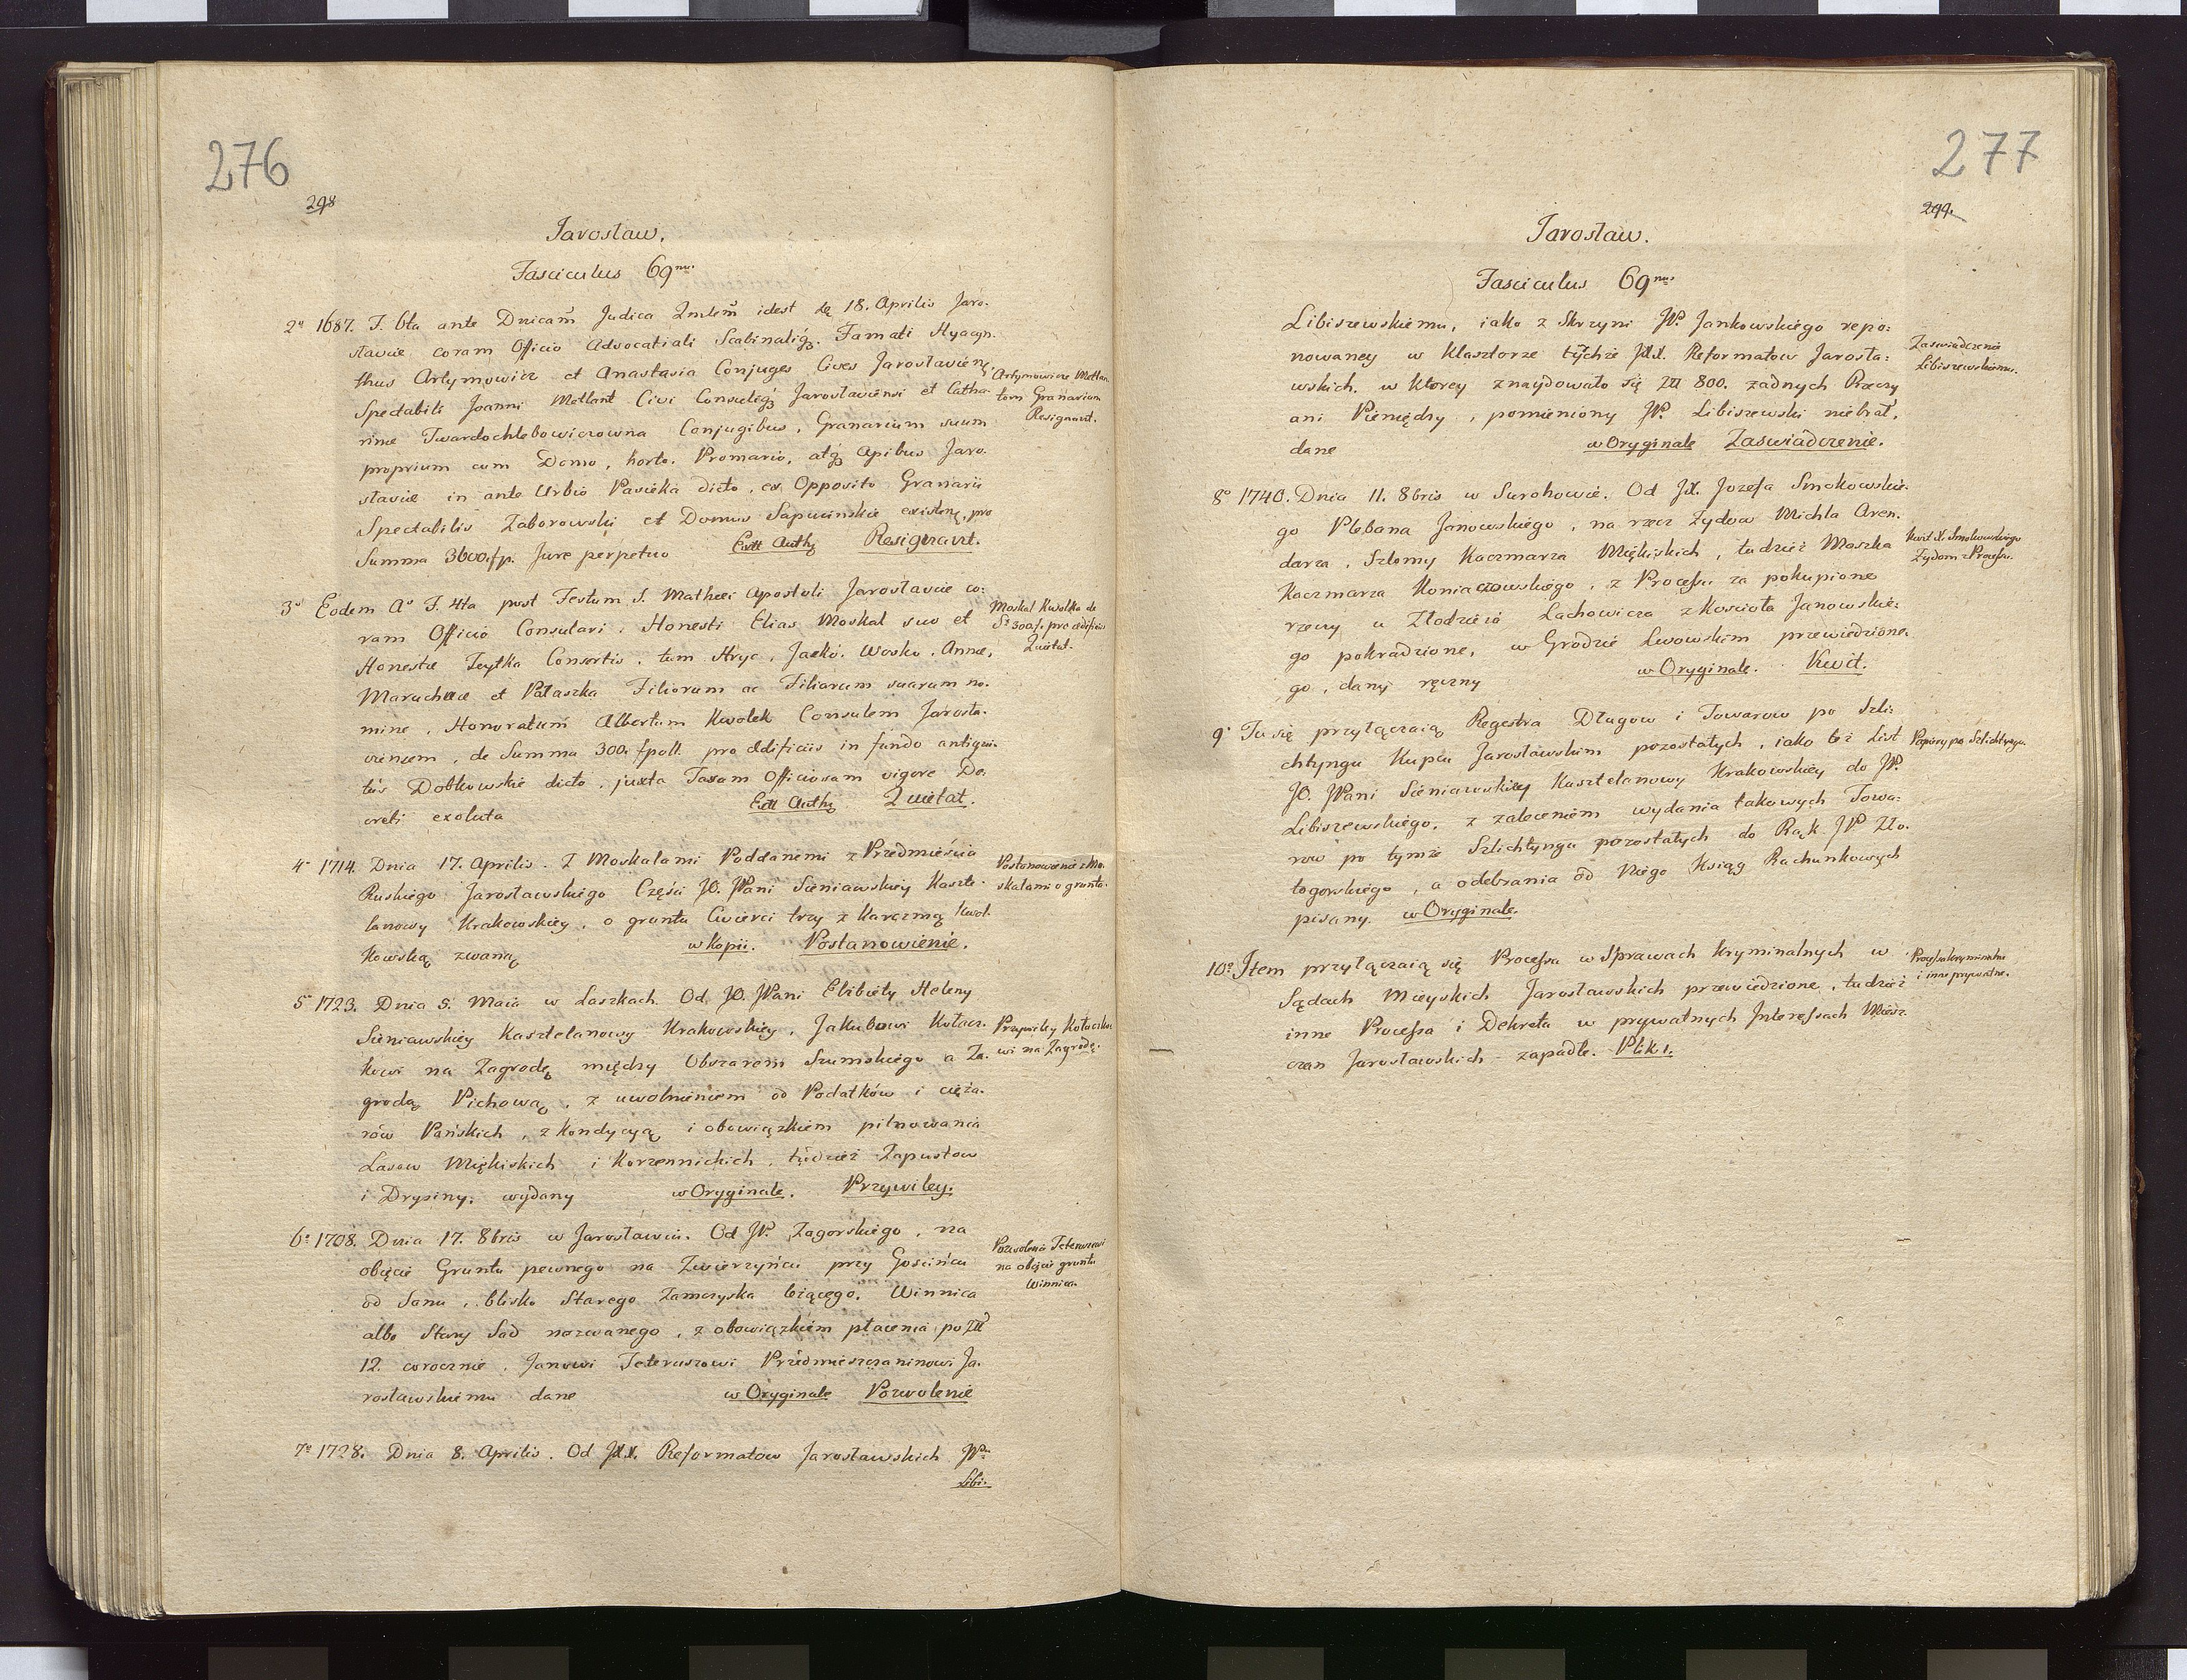 276
298
Jarosław.
Fasciculus 69nus.
2o 1687. F. 6ta ante Dnicam Judica idest 18. Aprilis Jaro-
slaviæ coram Officio Advocatiali Scabinaliq3. Famati Hyacyn-
thus Artymowicz et Anastasia Conjuges Cives Jaroslavienẽ.
Spectabili Joanni Metlant Civi Consuleq3 Jaroslaviensi et Catha-
rinæ Twardochlebowiczowna Conjugibus, Granarium suum
proprium cum Domo, horto, Promario, atq3 Apibus Jaro-
slaviæ in ante Urbio Pasieka dicto, ex Opposito Granarii
Spectabilis Zaborowski et Domus Sapucinskie existenẽ, pro
Summa 3600.fp. Jure perpetuo Extt Auth3 Resignavit.
Artymowicze Metlan-
tom Granarium
Resignavit.
3o Eodem Ao F. 4ta post Festum S. Mathæi Apostoli Jaroslaviæ co-
ram Officio Consulari. Honesti Elias Moskal suo et
Honestæ Consortis, tum Hryc, Jacko, Wasko, Annæ,
Maruchnæ et Palaszka Filiorum ac Filiarum suarum no-
mine, Honoratum Albertum Kwolek Consulem Jarosla-
viensem, de Summa 300. fpoll. pro ædificiis in fundo antiqui-
tus Dobkowskie dicto, juxta Taxam Officiosam vigore De-
creti exoluta Extt Auth3 Quietat.
Moskal Kwolka de
Sa 300f. pro ædificiis
Quietat.
4o 1714. Dnia 17. Aprilis. Z Moskalami Poddanemi z Przedmieścia
Ruskiego Jarosławskiego Części JO. JPani Sieniawskiey Kaszte-
lanowy Krakowskiey, o gruntu Cwierci trzy z Karczmą Kwol-
kowską zwaną w Kopii. Postanowienie.
Postanowienie z Mo-
skalami o grunta.
5o 1723. Dnia 5. Maia w Laszkach. Od JO. JPani Elżbiety Heleny
Sieniawskiey Kasztelanowy Krakowskiey, Jakubowi Kołacz-
kowi na Zagrodę między Obszarem Szumskiego a Za-
grodą Pichową, z uwolnieniem od Podatków i cięża-
rów Pańskich, z Kondycyą i obowiązkiem pilnowania
Lasow Miękiskich i Korzennickich, tudzież Zapustow
i Drysiny, wydany w Oryginale. Przywiley.
Przywiley Kołaczko-
wi na Zagrodę.
6o 1708. Dnia 17. 8bris w Jarosławiu. Od JP. Zagorskiego, na
obięcie Gruntu pewnego na Zwierzyńcu przy Gościńcu
od Sanu, blisko Starego Zamczyska leżącego, Winnica
albo Stary Sad nazwanego, z obowiązkiem płacenia po Złł
12. corocznie, Janowi Teteruszowi Przedmieszczaninowi Ja-
rosławskiemu dane w Oryginale Pozwolenie
Pozwolenie Teteruszowi
na obięcie gruntu
Winnica.
7o 1728. Dnia 8. Aprilis. Od JXX. Reformatow Jarosławskich JPu
Libi-
277
299.
Jarosław.
Fasciculus 69nus
Libiszewskiemu, iako z Skrzyni JP. Jankowskiego repo-
nowaney w Klasztorze tychże JXX. Reformatow Jarosła-
wskich, w ktorey znaydowało się Złł 800. żadnych Rzeczy
ani Pieniędzy, pomieniony JP. Libiszewski niebrał,
dane w Oryginale Zaswiadczenie.
Zaswiadczenie
Libiszewskiemu.
8o 1740. Dnia 11. 8bris w Surohowie. Od JX. Jozefa Smokowskie-
go Plebana Janowskiego, na rzecz Zydow Michla Aren-
darza, Szlomy Kaczmarza Miękiskich, tudzież Maszka
Kaczmarza Koniaczowskiego, z Procesu za pokupione
rzeczy u Złodzieia Lachowicza z Kościoła Janowskie-
go pokradzione, w Grodzie Lwowskim przewiedzione-
go, dany ręczny w Oryginale. Kwit.
Kwit X. Smokowskiego
Zydom z Procesu.
9o Tu się przyłączaią Regestra Długow i Towarow po Szli-
chtyngu Kupcu Jarosławskim pozostałych, iako też List
JO. JPani Sieniawskiey Kasztelanowy Krakowskiey do JP.
Libiszewskiego, z zaleceniem wydania takowych Towa-
row po tymże Szlichtyngu pozostałych do Rąk JP Zło-
togorskiego, a odebrania od Niego Ksiąg Rachunkowych
pisany. w Oryginale.
Papiery po Szlichtyngu.
10o Item przyłączaią się Procesa w Sprawach kryminalnych w
Sądach Mieyskich Jarosławskich przewiedzione, tudzież
inne Procesa i Dekreta w prywatnych Interessach Miesz-
czan Jarosławskich zapadłe. Plik 1.
Procesa kryminalne
i inne prywatne.